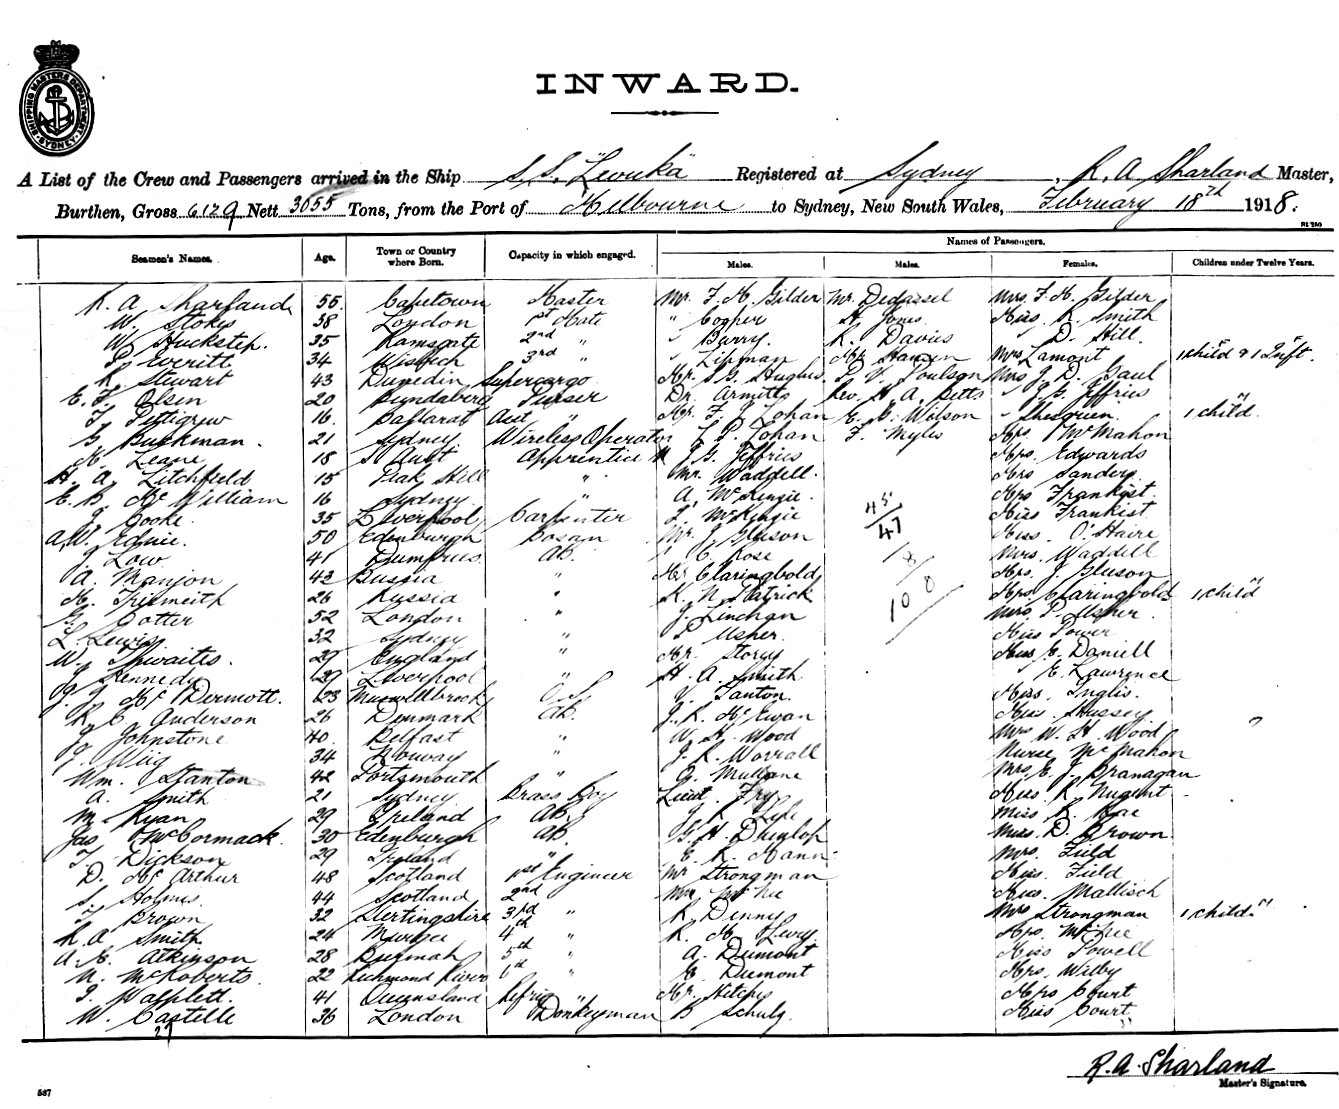 SHIPPING MASTERS DEPARTMENT SYDNEY
INWARD.
A List of the Crew and Passengers arrived in the Ship S.S. "Levuka" Registered at Sydney, R. A Sharland Master,
Burthen, Gross 6129 Nett 3055 Tons, from the Port of Melbourne to Sydney, New South Wales, February 18th 1918.
Names of Passengers.
Seamen's Names. Age. Town or Country where Born. Capacity in which engaged. Males. Males. Females. Children under Twelve Years.
R. A Sharland 55 Capetown Master Mr. F. H. Gilder Mr. Mrs. F. H. Gilder
W. Stokes 38 London 1st Mate " Cooper H Jones Miss R. Smith
W. Huckstep. 35 Ramsgate 2nd " " Barry. R. Davies " D. Hill.
P. Everitt 34 Wisbech 3rd " " Lipman Mr Hansen Mrs Lamont 1 child & 1 Inft.
R. Stewart 43 Dunedin Supercargo Mr. S. G. Hughes P. V. Poulson Mrs J. D. Paul
E. F. Olsen 20 Bundaberg Purser Dr. Armitts Rev. H A. Betts " J. G. Jeffries
T. Pettigrew 16. Ballarat Asst " Mr. F. J. Lohan E. G. Wilson " 1 child.
G. Buckman. 21 Sydney. Wireless Operator " L. P. Lohan F. Myles Mrs McMahon
K. Leane 18 S. Aust Apprentice J. G. Jeffries Mrs. Edwards
H. A. Litchfield 15 Peak Hill " Mr. Waddell. Mrs Sanders
E. B. McWilliam 16 Sydney " A. McKenzie. Mrs Frankist.
J. Cooke. 35 Liverpool Carpenter J. McKenzie Miss Frankist
A. W. Ednie. 50 Edenburgh Bosun Mr. J. Gluson Miss. O'Haire
J. Low. 41 Dumfries. AB. C. Rose Mrs. Waddell
A. Manjon 43 Russia " Mr Claringbold Mrs. J. Gluson
K. 26 Russia " K. N. Patrick Mrs. Claringbold 1 child
G. Cotter 52 London " J. Linehan Mrs. P. Usher.
L. Lewis 32 Sydney " P. Usher. Miss Power
W. Thwaites. 29 England " Mr. Storey Miss E. Daniell
J. Kennedy 29 Liverpool " H. A. Smith " E. Lawrence
J. McDermott. 23 O.S. Y. Tanton. Miss. Inglis.
R. C. Anderson 26 Denmark AB. J. R. McEwan Miss Hussey
J. Johnstone 40. Belfast " W. H. Wood Mrs W. H. Wood
J. Wiig 34 Norway " J. R. Worrall Nurse McMahon
Wm. Stanton 42 Portsmouth " G. Mullane Mrs. E. J. Branagan
A. Smith 21 Sydney. Brass Boy Lieut. Fry Miss R. Nugent
M. Ryan 29 Ireland AB. J. R. Lyle Miss R. Rae
Jas McCormack. 30 Edenburgh AB. G. H. Dunlop Miss. D. Brown
T. Dickson 29 Ireland " E. R. Hann Mrs. Field
D. McArthur 48 Scotland 1st Engineer Mr Strongman Miss. Field
S. Holmes. 44 Scotland 2nd " Mr. McNee Miss. Mallisch
T. Brown 32 Stertingshire 3rd " R. Denny Mrs Strongman 1 child.
R A. Smith 24 Mudgee 4th " R. H. Levy. Mrs. McNee
A. C. Atkinson 28 Burmah 5th " A. Dumont Miss Powell
N. McRoberts. 22 Richmond River 6th " E. Dumont Mrs. Wilby
J. 41 Queensland Refrig " Mr. Hitches Mrs Court
W. Castelle 36 London Donkeyman B Schulz. Miss Court
45
47
18
108
R. A. Sharland
Master's Signature.